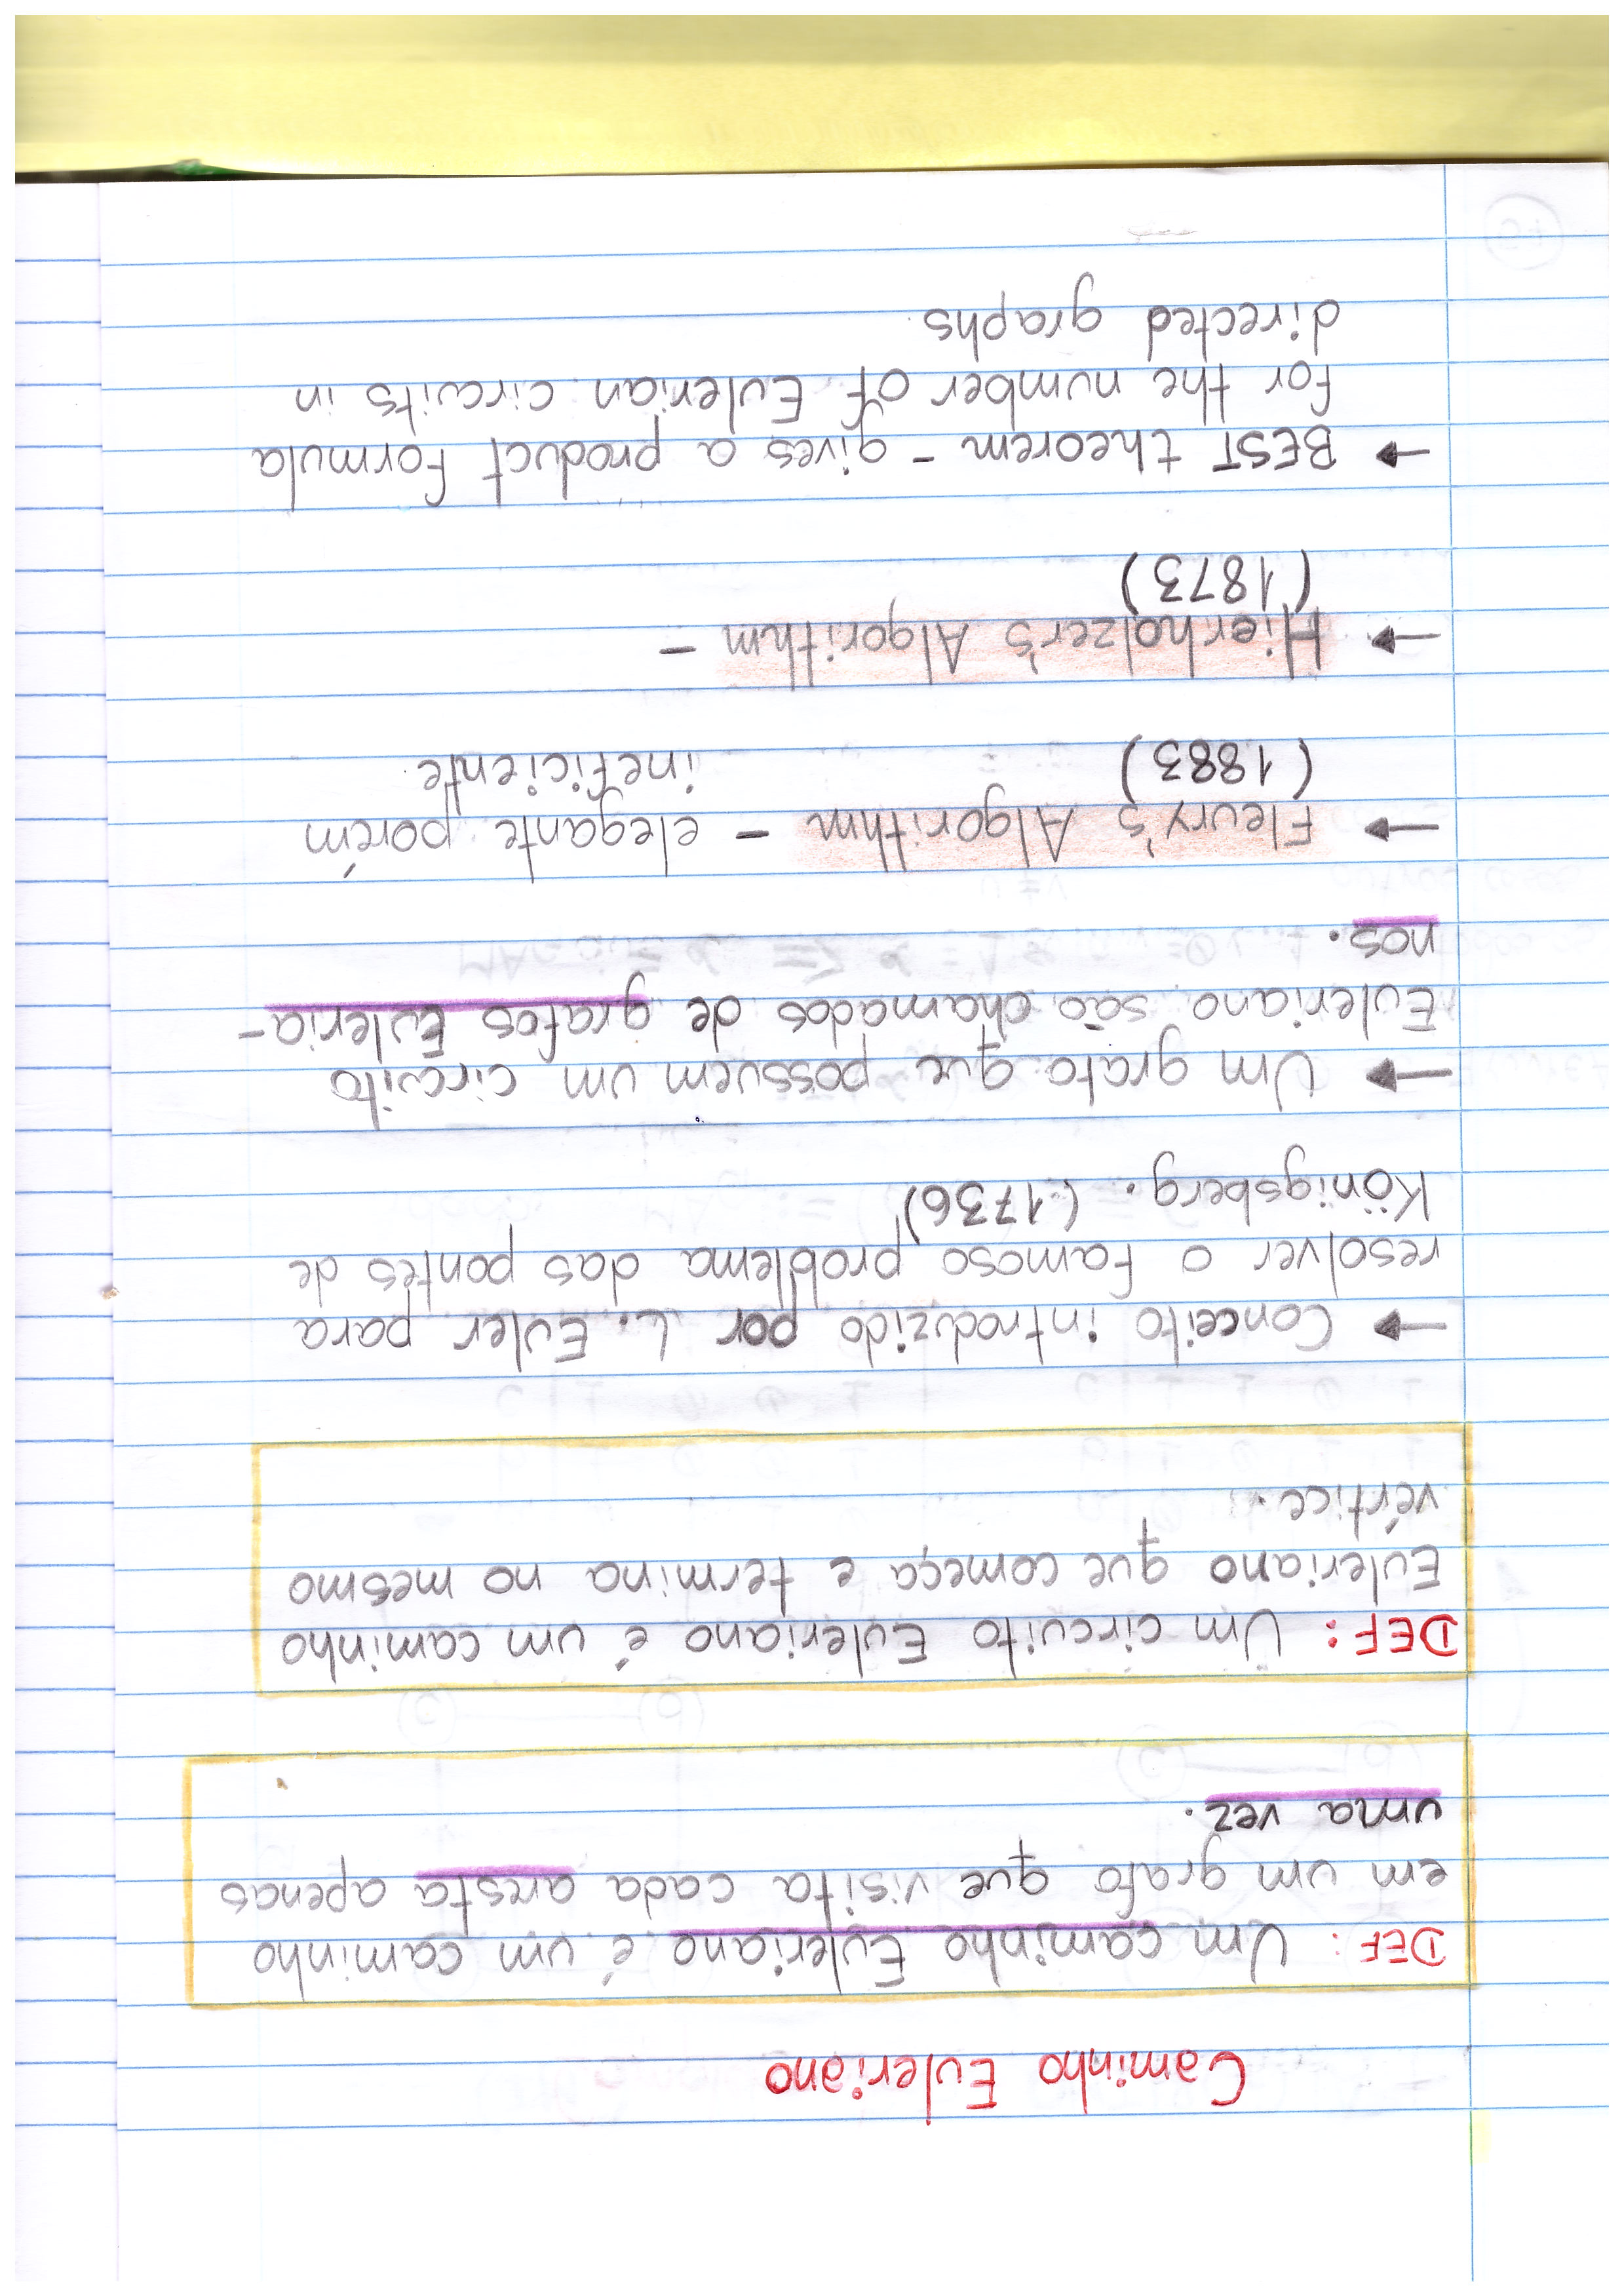 Caminho Euleriano
DEF: Um caminho Euleriano é um caminho
em um grafo que visita cada aresta apenas
uma vez.
DEF: Um circuito Euleriano é um caminho
Euleriano que começa e termina no mesmo
vértice.
→ Conceito introduzido por L. Euler para
resolver o famoso problema das pontes de
Königsberg. (1736)
→ Um grafo que possuem um circuito
Euleriano são chamados de grafos Euleria-
nos.
→ Fleury's Algorithm - elegante porém
(1883) ineficiente.
→ Hierholzer's Algorithm -
(1873)
→ BEST theorem - gives a product formula
for the number of Eulerian circuits in
directed graphs.